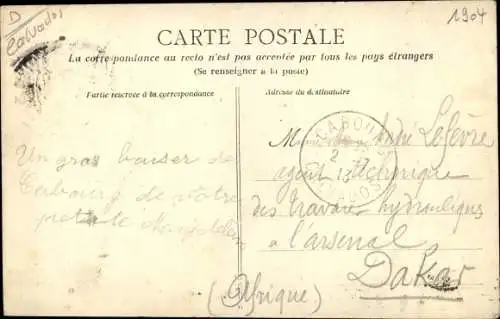 D
Calvados
1904
CARTE POSTALE
La correspondance au recto n'est pas acceptée par tous les pays étrangers
(Se renseigner à la poste)
Partie réservée à la correspondance
Adresse du destinataire
CABOURG
2
13
CALVADOS
Un gros baiser de
Cabourg de votre
petite
Monsieur André Lefèvre
agent technique
des travaux hydrauliques
à l'arsenal
Dakar
(Afrique)